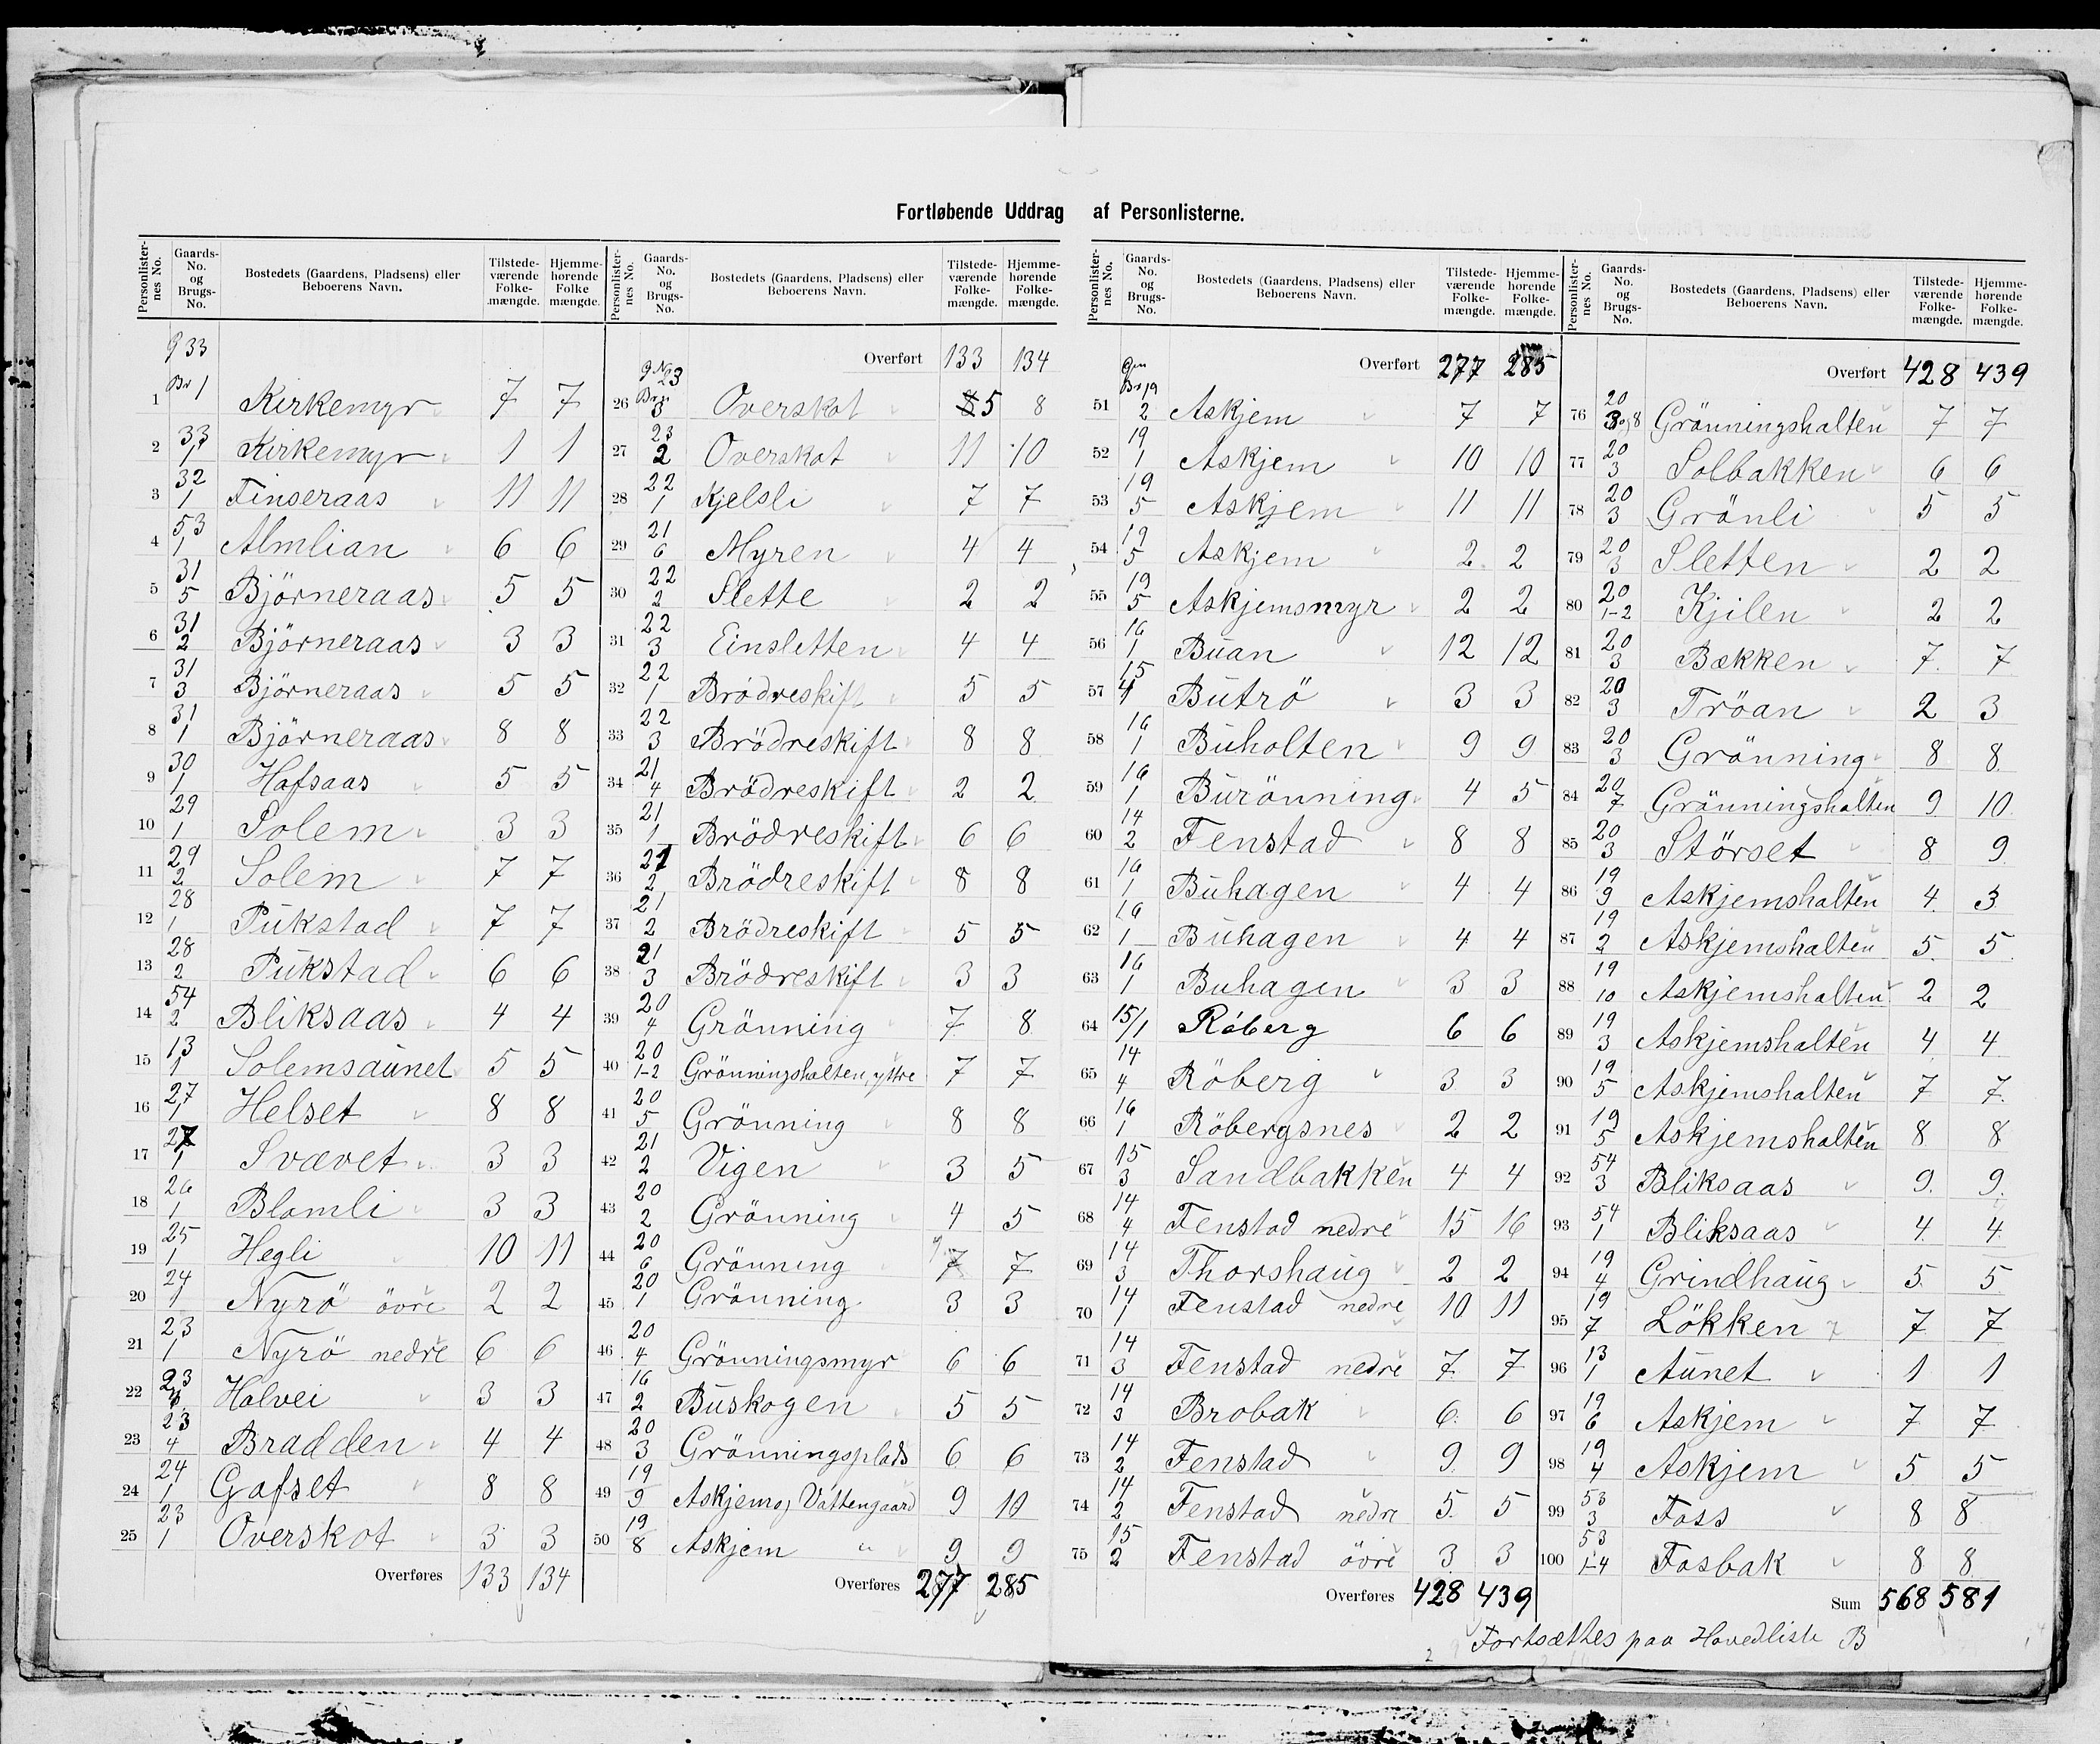 Fortløbende Uddrag af Personlisterne.
Personlisternes No. Gaards-No. og Brugs-No. Bostedets (Gaardens, Pladsens) eller Beboerens Navn. Tilstedeværende Folkemængde. Hjemmehørende Folkemængde.
g 33
Br 1
1 Kirkemyr 7 7
2 33/1 Kirkemyr 1 1
3 32/1 Finseraas 11 11
4 53/1 Almlian 6 6
5 31/5 Björneraas 5 5
6 31/2 Björneraas 3 3
7 31/3 Björneraas 5 5
8 31/1 Björneraas 8 8
9 30/1 Hafsaas 5 5
10 29/1 Solem 3 3
11 29/2 Solem 7 7
12 28/1 Pukstad 7 7
13 28/2 Pukstad 6 6
14 54/2 Bliksaas 4 4
15 13/1 Solemsaunet 5 5
16 27/1 Helset 8 8
17 27/1 Svævet 3 3
18 26/1 Blomli 3 3
19 25/1 Hegli 10 11
20 24/1 Nyrö övre 2 2
21 23/1 Nyrö nedre 6 6
22 23 Holvei 3 3
23 23/4 Bradden 4 4
24 24/1 Gafset 8 8
25 23/1 Overskot 3 3
Overføres 133 134
Personlisternes No. Gaards-No. og Brugs-No. Bostedets (Gaardens, Pladsens) eller Beboerens Navn. Tilstedeværende Folkemængde. Hjemmehørende Folkemængde.
Overført 133 134
26 23/3 Overskot 5 8
27 23/2 Overskot 11 10
28 22/1 Kjelsli 7 7
29 21/6 Myren 4 4
30 22/2 Slette 2 2
31 22/3 Einsletten 4 4
32 22/1 Brödreskift 5 5
33 22/3 Brödreskift 8 8
34 21/4 Brödreskift 2 2
35 21/1 Brödreskift 6 6
36 21/2 Brödreskift 8 8
37 21/2 Brödreskift 5 5
38 21/3 Brödreskift 3 3
39 20/4 Grönning 7 8
40 20/1-2 Grönningshalten, yttre 7 7
41 20/5 Grönning 8 8
42 21/2 Vigen 3 5
43 20/2 Grönning 4 5
44 20/6 Grönning 7 7
45 20/1 Grönning 3 3
46 20/4 Grönningsmyr 6 6
47 16/2 Buskogen 5 5
48 20/3 Grönningsplads 6 6
49 19/9 Askjem og Vattengaard 9 10
50 19/8 Askjem " 9 9
Overføres 277 285
Personlisternes No. Gaards-No. og Brugs-No. Bostedets (Gaardens, Pladsens) eller Beboerens Navn. Tilstedeværende Folkemængde. Hjemmehørende Folkemængde.
Overført 277 285
51 19/2 Askjem 7 7
52 19/1 Askjem 10 10
53 19/5 Askjem 11 11
54 19/5 Askjem 2 2
55 19/5 Askjemsmyr 2 2
56 16/1 Buan 12 12
57 15/4 Butrö 3 3
58 16/1 Buholten 9 9
59 16/1 Burönning 4 5
60 14/2 Fenstad 8 8
61 16/1 Buhagen 4 4
62 16/1 Buhagen 4 4
63 16/1 Buhagen 3 3
64 15/1 Röberg 6 6
65 14/4 Röberg 3 3
66 16/1 Röbergsnes 2 2
67 15/3 Sandbakken 4 4
68 14/4 Fenstad nedre 15 16
69 14/3 Thorshaug 2 2
70 14/1 Fenstad nedre 10 11
71 14/3 Fenstad nedre 7 7
72 14/3 Brobak 6 6
73 14/2 Fenstad 9 9
74 14/2 Fenstad nedre 5 5
75 15/2 Fenstad övre 3 3
Overføres 428 439
Personlisternes No. Gaards-No. og Brugs-No. Bostedets (Gaardens, Pladsens) eller Beboerens Navn. Tilstedeværende Folkemængde. Hjemmehørende Folkemængde.
Overført 428 439
76 20/3og8 Grönningshalten 7 7
77 20/3 Solbakken 6 6
78 20/3 Grönli 5 5
79 20/3 Sletten 2 2
80 20/1-2 Kjilen 2 2
81 20/3 Bækken 7 7
82 20/3 Tröan 2 3
83 20/3 Grönning 8 8
84 20/7 Grönningshalten 9 10
85 20/3 Störset 8 9
86 19/9 Askjemshalten 4 3
87 19/2 Askjemshalten 5 5
88 19/10 Askjemshalten 2 2
89 19/3 Askjemshalten 4 4
90 19/5 Askjemshalten 7 7
91 19/5 Askjemshalten 8 8
92 54/3 Bliksaas 9 9
93 54/1 Bliksaas 4 4
94 19/4 Grindhaug 5 5
95 19/7 Lökken 7 7
96 13/1 Aunet 1 1
97 19/6 Askjem 7 7
98 19/4 Askjem 5 5
99 53/3 Foss 8 8
100 53/1-4 Fosbak 8 8
Sum 568 581
Fortsættes paa Hovedliste B